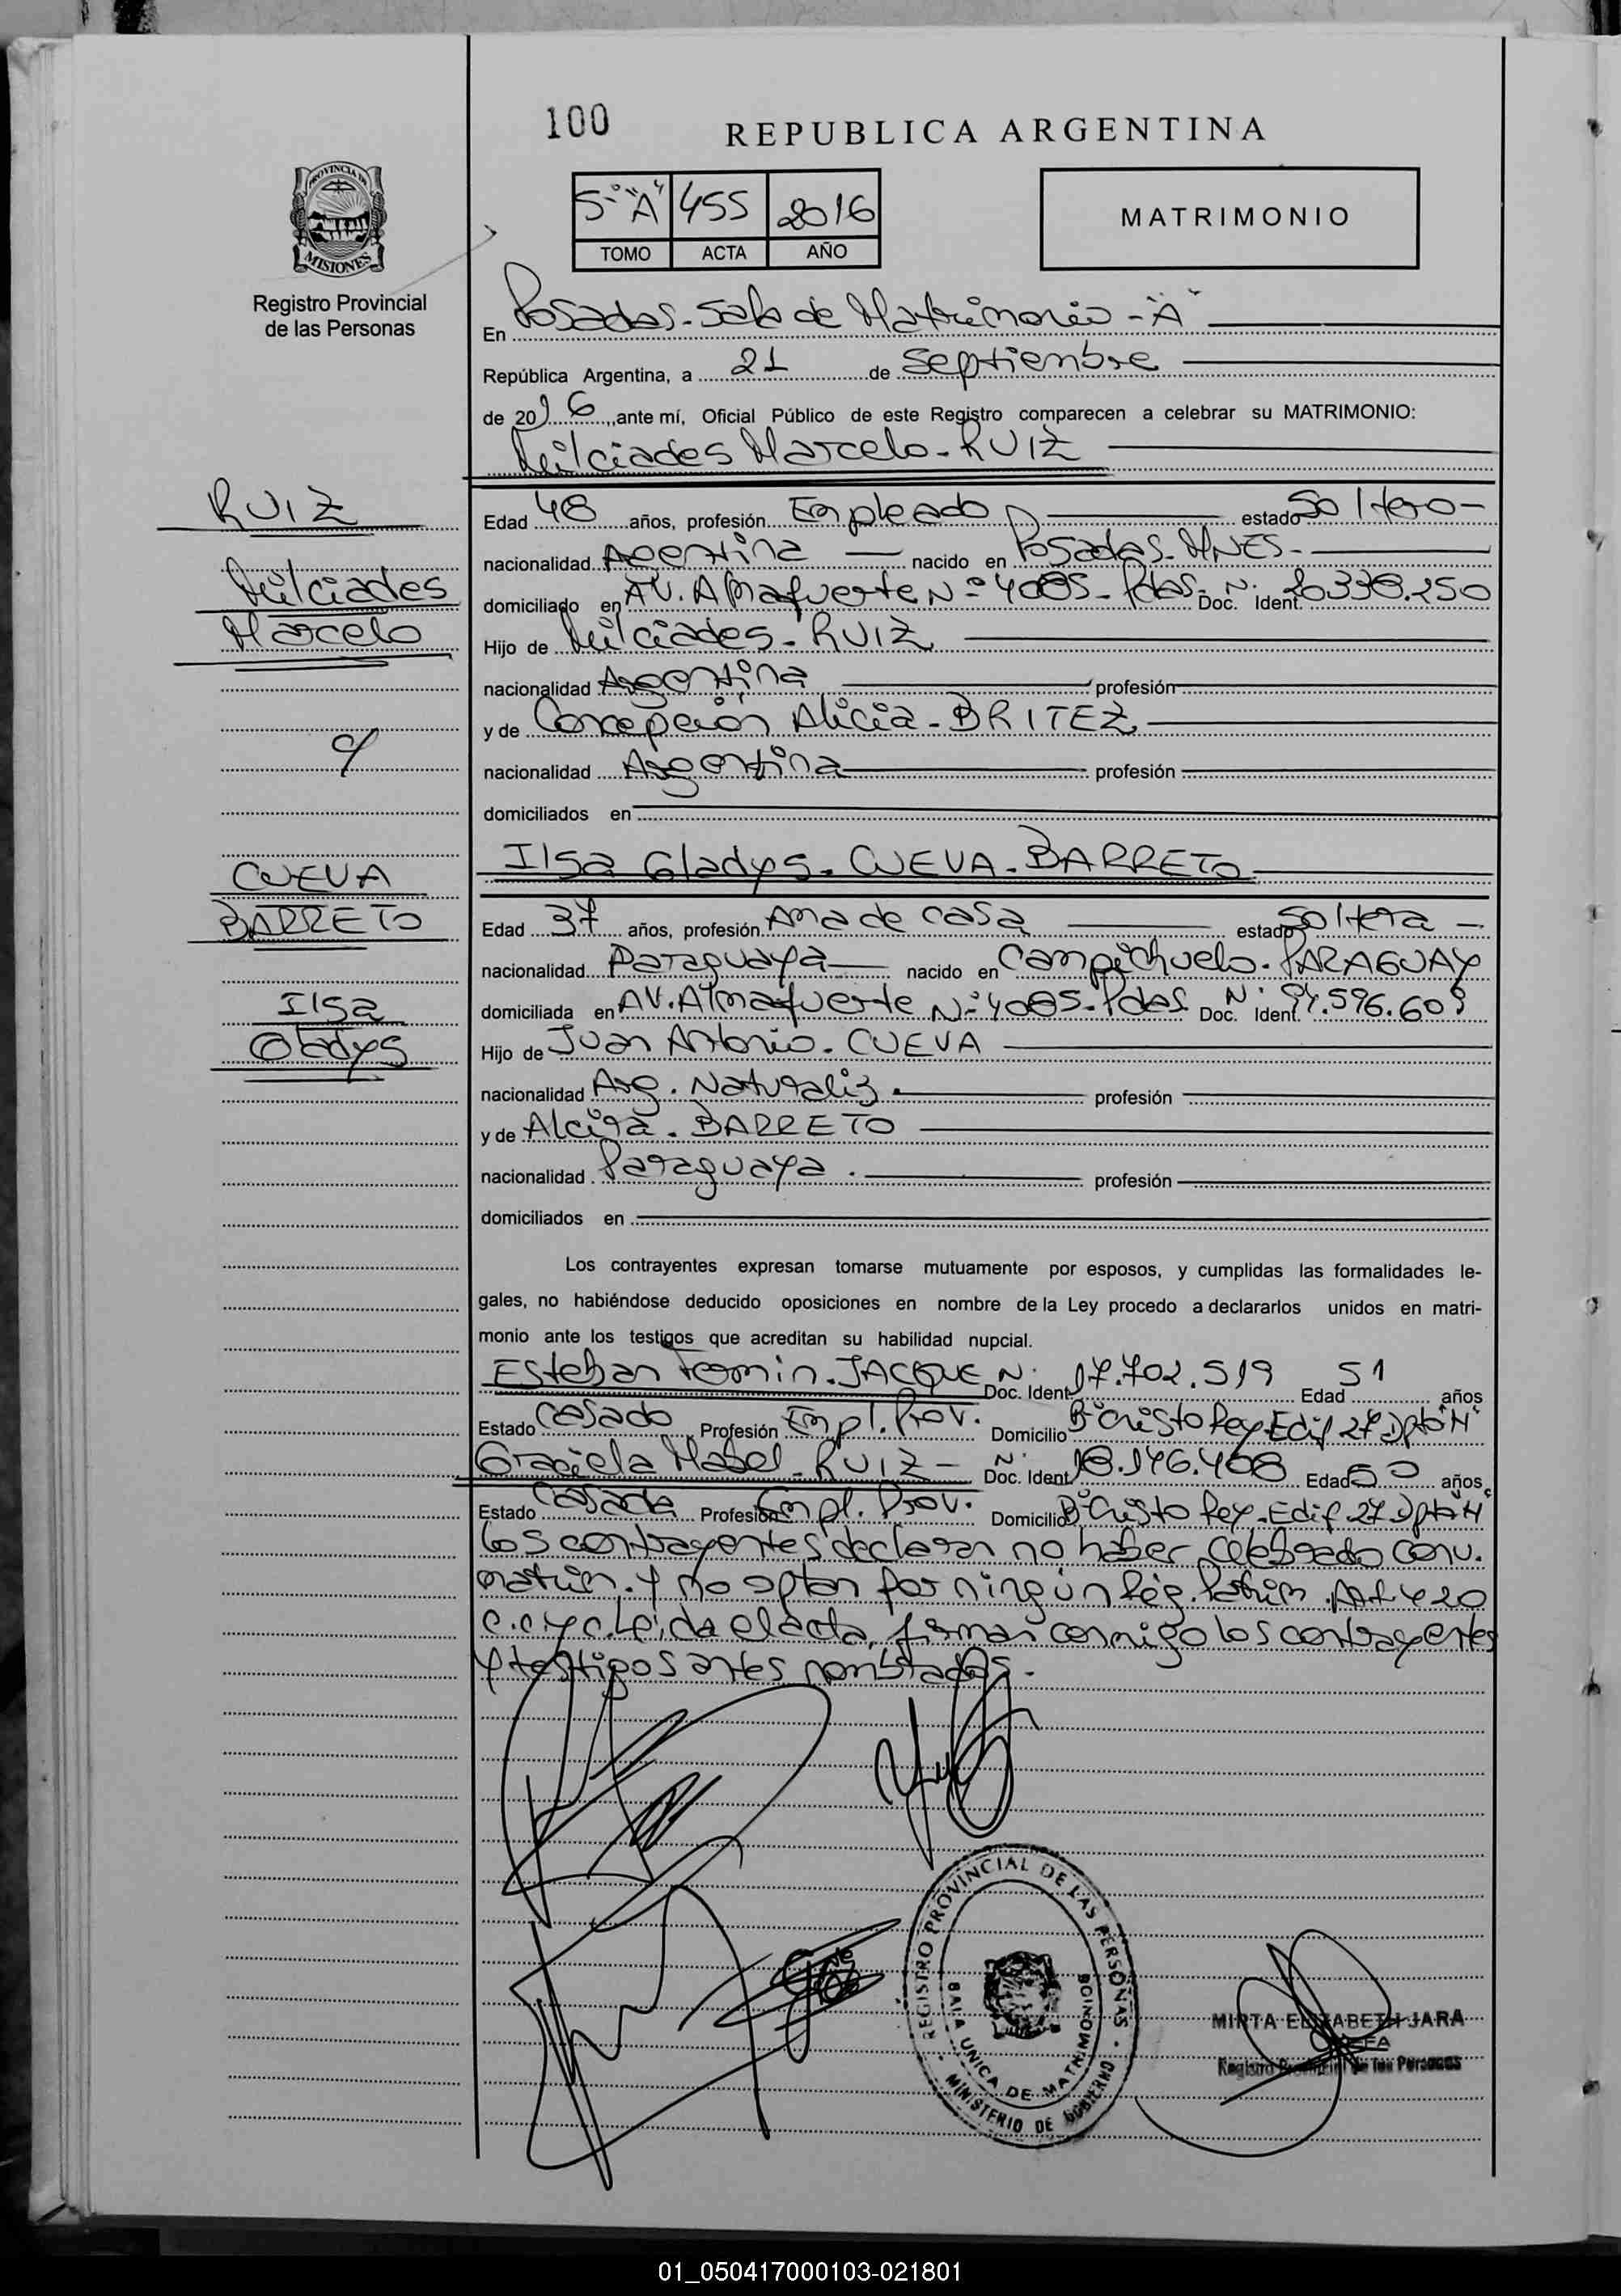 100
REPUBLICA ARGENTINA
PROVINCIA DE
MISIONES
Registro Provincial
de las Personas
5º "A" 455 2016
TOMO ACTA AÑO
MATRIMONIO
En Posadas-Sala de Matrimonio-"A"
República Argentina, a 21 de Septiembre
de 2016, ante mí, Oficial Público de este Registro comparecen a celebrar su MATRIMONIO:
Milciades Marcelo-RUIZ
RUIZ
Milciades
Marcelo
Edad 48 años, profesión Empleado estado Soltero-
nacionalidad Argentina nacido en Posadas-MNES-
domiciliado en AV. Almafuerte Nº 4085-Pdas- Doc. Ident. Nº 20.338.250
Hijo de Milciades-RUIZ
nacionalidad Argentina profesión
y de Concepción Alicia-BRITEZ
c/
nacionalidad Argentina profesión
domiciliados en
Ilsa Gladys-CUEVA-BARRETO
CUEVA
BARRETO
Ilsa
Gladys
Edad 37 años, profesión Ama de casa estado Soltera-
nacionalidad Paraguaya nacido en Campichuelo-PARAGUAY
domiciliada en AV. Almafuerte Nº 4085-Pdas Doc. Ident. Nº 94.596.609
Hijo de Juan Antonio-CUEVA
nacionalidad Arg. Naturaliz. profesión
y de Alcira-BARRETO
nacionalidad Paraguaya. profesión
domiciliados en
Los contrayentes expresan tomarse mutuamente por esposos, y cumplidas las formalidades le-
gales, no habiéndose deducido oposiciones en nombre de la Ley procedo a declararlos unidos en matri-
monio ante los testigos que acreditan su habilidad nupcial.
Esteban Fermin-JACQUE Doc. Ident. Nº 17.702.519 Edad 51 años
Estado Casado Profesión Empl. Prov. Domicilio Bº Cristo Rey-Edif 27 Dpto "H"
Graciela Mabel-RUIZ- Doc. Ident. Nº 18.146.408 Edad 50 años
Estado Casada Profesión Empl. Prov. Domicilio Bº Cristo Rey-Edif 27 Dpto "H"
Los contrayentes declaran no haber celebrado conv.
matrim. y no optan por ningún Rég. Patrim. Art 420
C.C y C. Leída el acta, firman conmigo los contrayentes
y testigos antes nombrados.
REGISTRO PROVINCIAL DE LAS PERSONAS
MINISTERIO DE GOBIERNO
SALA UNICA DE MATRIMONIOS
MIRTA ELIZABETH JARA
JEFA
Registro Provincial de las Personas
01_050417000103-021801